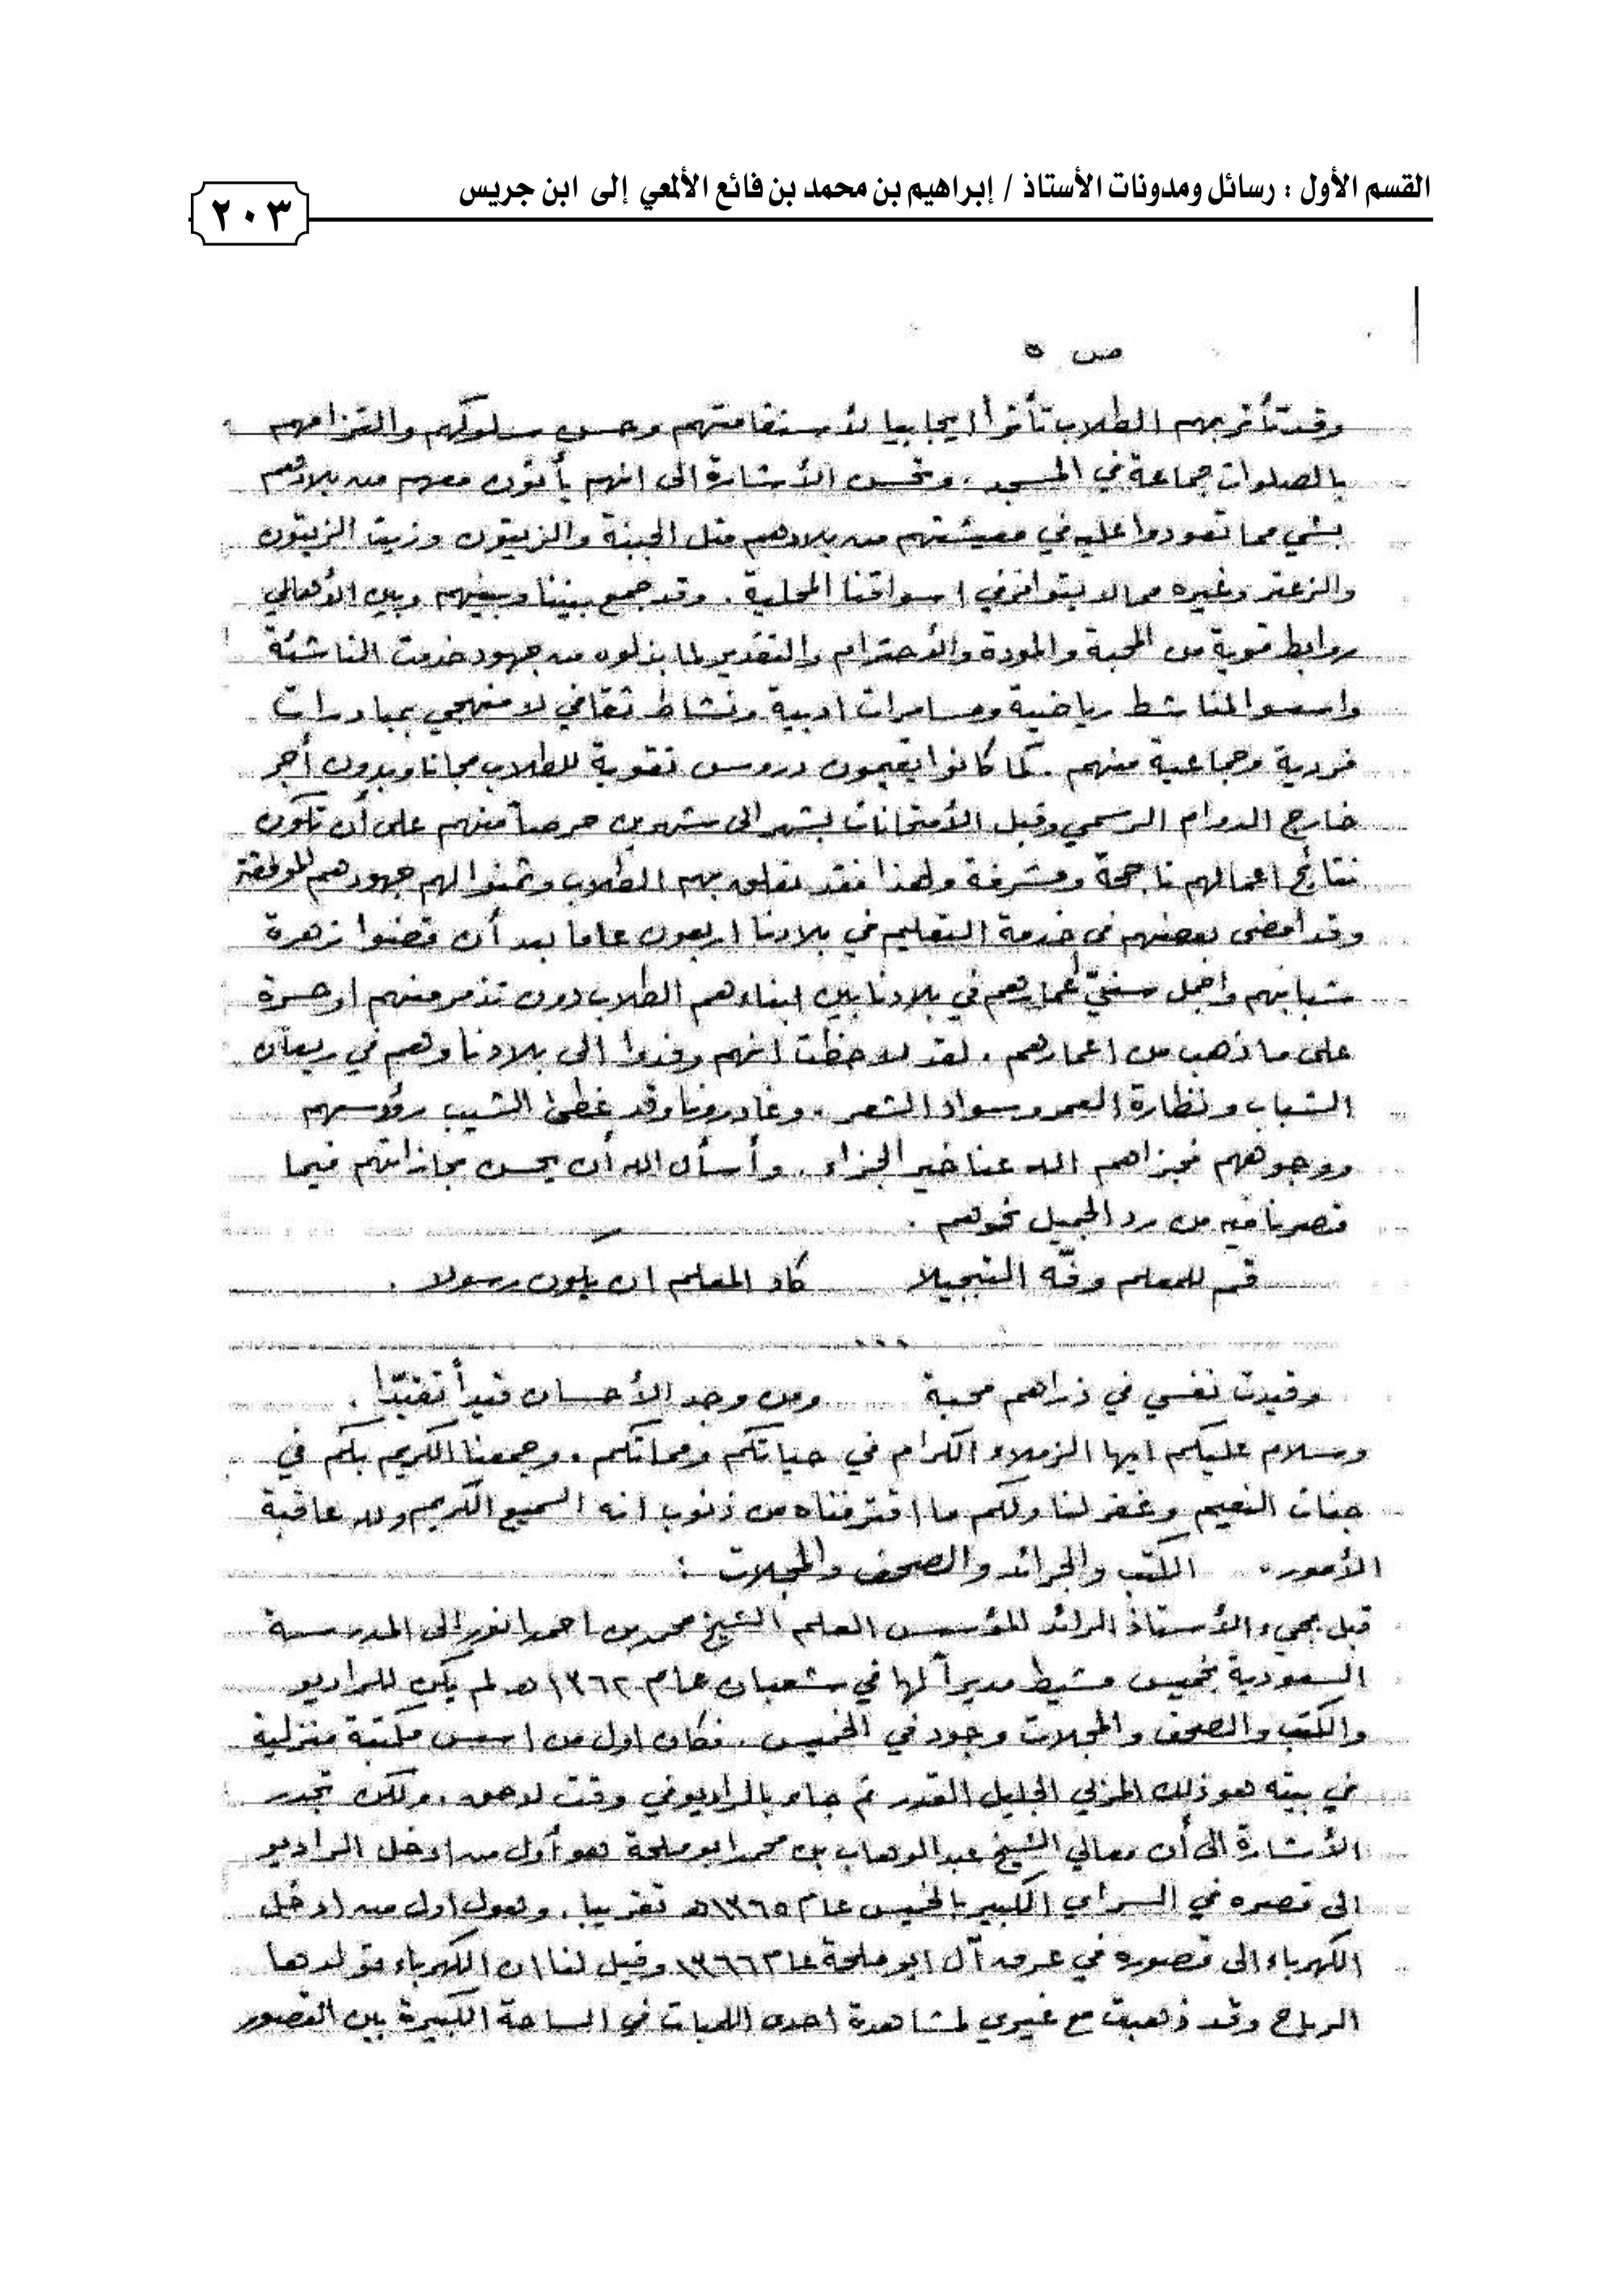 القسم الأول : رسائل ومدونات الأستاذ / إبراهيم بن محمد بن فائع الألمعي إلى ابن جريس
٢٠٣
ص ٥
وقد تأثر بهم الطلاب تأثراً ايجابيا لأستقامتهم وحسن سلوكهم والتزامهم
بالصلوات جماعة في المسجد . وتحسن الأشارة الى انهم يأتون معهم من بلادهم
بشي مما تعودوا عليه في معيشتهم من بلادهم مثل الجبنة والزيتون وزيت الزيتون
والزعتر وغيره ممالا يتوافر في اسواقنا المحلية . وقد جمع بيننا وبينهم وبين الأهالي
روابط قوية من المحبة والمودة والأحترام والتقدير لما بذلوه من جهود خدمت الناشئة
واسسوا لمناشط رياضية ومسامرات ادبية ونشاط ثقافي لا منهجي بمبادرات
فردية وجماعية منهم . كما كانوا يقيمون دروس تقوية للطلاب مجانا وبدون أجر
خارج الدوام الرسمي وقبل الأمتحانات بشهر الى شهرين حرصاً منهم على أن تكون
نتائج اعمالهم ناجحة ومشرفة ولهذا فقد تعلق بهم الطلاب وثمنوا لهم جهودهم الموفقة
وقد أمضى بعضهم في خدمة التعليم في بلادنا اربعون عاما بعد أن قضوا زهرة
شبابهم واجمل سنيّ أعمارهم في بلادنا بين ابناءهم الطلاب دون تذمر منهم او حسرة
على ما ذهب من اعمارهم . لقد لاحظت انهم وفدوا الى بلادنا وهم في ريعان
الشباب ونظارة العمر وسواد الشعر . وغادرونا وقد غطى الشيب رؤوسهم
ووجوههم فجزاهم الله عنا خير الجزاء . وأسأل الله أن يحسن مجازاتهم فيما
قصرنا فيه من رد الجميل نحوهم .
قم للمعلم وفّه التبجيلا كاد المعلم ان يكون رسولا .
...
وقيدت نفسي في ذراهم محبة ومن وجد الأحسان قيداً تقيّدا .
وسلام عليكم ايها الزملاء الكرام في حياتكم ومماتكم . وجمعنا الكريم بكم في
جنات النعيم وغفر لنا ولكم ما اقترفناه من ذنوب انه السميع الكريم ولله عاقبة
الأمور . الكتب والجرائد والصحف والمجلات :
قبل مجيء الأستاذ الرائد المؤسس العلم الشيخ محمد بن احمد انور الى المدرسة
السعودية بخميس مشيط مديراً لها في شعبان عام ١٣٦٢ هـ لم يكن للراديو
والكتب والصحف والمجلات وجود في الخميس . فكان اول من اسس مكتبة منزلية
في بيته هو ذلك المربي الجليل القدر ثم جاء بالراديو في وقت لاحق . ولكن تجدر
الأشارة الى أن معالي الشيخ عبد الوهاب بن محمد ابو ملحة هو أول من ادخل الراديو
الى قصره في السراي الكبير بالخميس عام ١٣٦٥هـ تقريبا . وهو اول من ادخل
الكهرباء الى قصوره في عرق آل ابو ملحة عام ١٣٦٦ وقيل لنا ان الكهرباء تولدها
الرياح وقد ذهبت مع غيري لمشاهدة احدى اللمبات في الساحة الكبيرة بين القصور